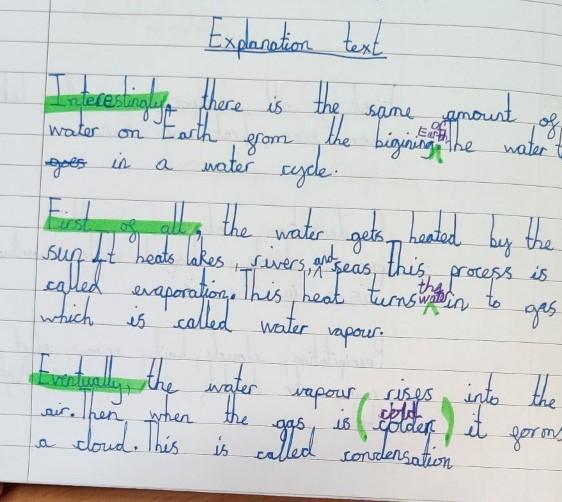 Explanation text
Interestingly, there is the same amount of
of Earth
water on Earth from the bigining. the water
goes in a water cycle.
First of all, the water gets heated by the
sun. It heats lakes, rivers, and seas, this process is
called evaporation. This heat turns the water in to gas
which is called water vapour.
Eventually, the water vapour rises into the
cold
air. Then, when the gas is (colder) it forms
a cloud. This is called condensation